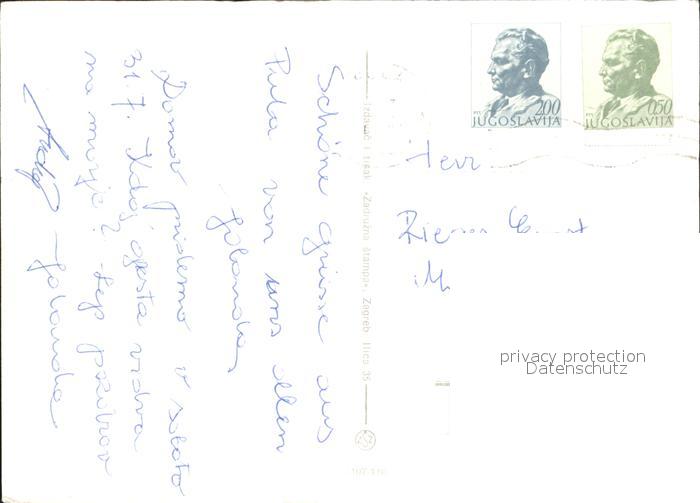 Schöne Grüsse aus
Pula von uns allen
Jolanda,
Domov pridemo v soboto
31.7. Kdaj greste vidva
na morje? Lep pozdrav
Jolanda
Izdavač i tisak »Zadružna štampa«, Zagreb Ilica 35
2,00
JUGOSLAVIJA
0,50
JUGOSLAVIJA
Herr
privacy protection
Datenschutz